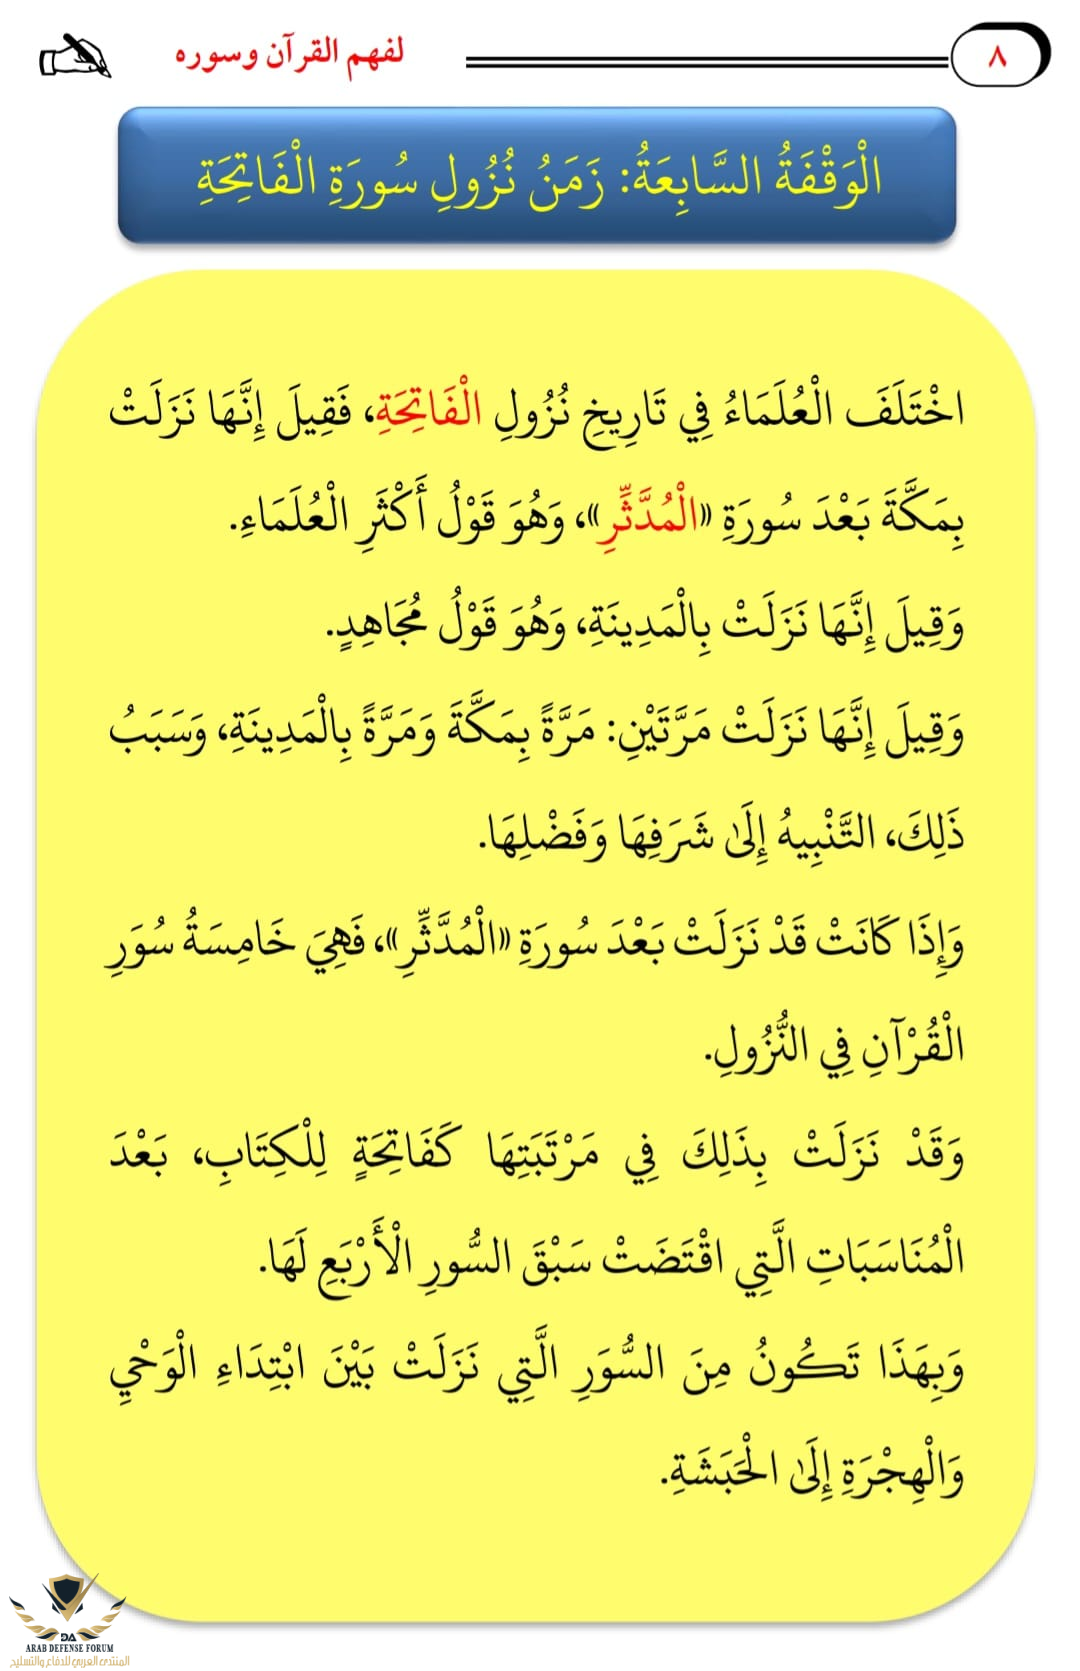 ٨
لفهم القرآن وسوره
الْوَقْفَةُ السَّابِعَةُ: زَمَنُ نُزُولِ سُورَةِ الْفَاتِحَةِ
اخْتَلَفَ الْعُلَمَاءُ فِي تَارِيخِ نُزُولِ الْفَاتِحَةِ، فَقِيلَ إِنَّهَا نَزَلَتْ
بِمَكَّةَ بَعْدَ سُورَةِ «الْمُدَّثِّرِ»، وَهُوَ قَوْلُ أَكْثَرِ الْعُلَمَاءِ.
وَقِيلَ إِنَّهَا نَزَلَتْ بِالْمَدِينَةِ، وَهُوَ قَوْلُ مُجَاهِدٍ.
وَقِيلَ إِنَّهَا نَزَلَتْ مَرَّتَيْنِ: مَرَّةً بِمَكَّةَ وَمَرَّةً بِالْمَدِينَةِ، وَسَبَبُ
ذَلِكَ، التَّنْبِيهُ إِلَىٰ شَرَفِهَا وَفَضْلِهَا.
وَإِذَا كَانَتْ قَدْ نَزَلَتْ بَعْدَ سُورَةِ «الْمُدَّثِّرِ»، فَهِيَ خَامِسَةُ سُوَرِ
الْقُرْآنِ فِي النُّزُولِ.
وَقَدْ نَزَلَتْ بِذَلِكَ فِي مَرْتَبَتِهَا كَفَاتِحَةٍ لِلْكِتَابِ، بَعْدَ
الْمُنَاسَبَاتِ الَّتِي اقْتَضَتْ سَبْقَ السُّورِ الْأَرْبَعِ لَهَا.
وَبِهَذَا تَكُونُ مِنَ السُّوَرِ الَّتِي نَزَلَتْ بَيْنَ ابْتِدَاءِ الْوَحْيِ
وَالْهِجْرَةِ إِلَىٰ الْحَبَشَةِ.
DA
ARAB DEFENSE FORUM
المنتدى العربي للدفاع والتسليح